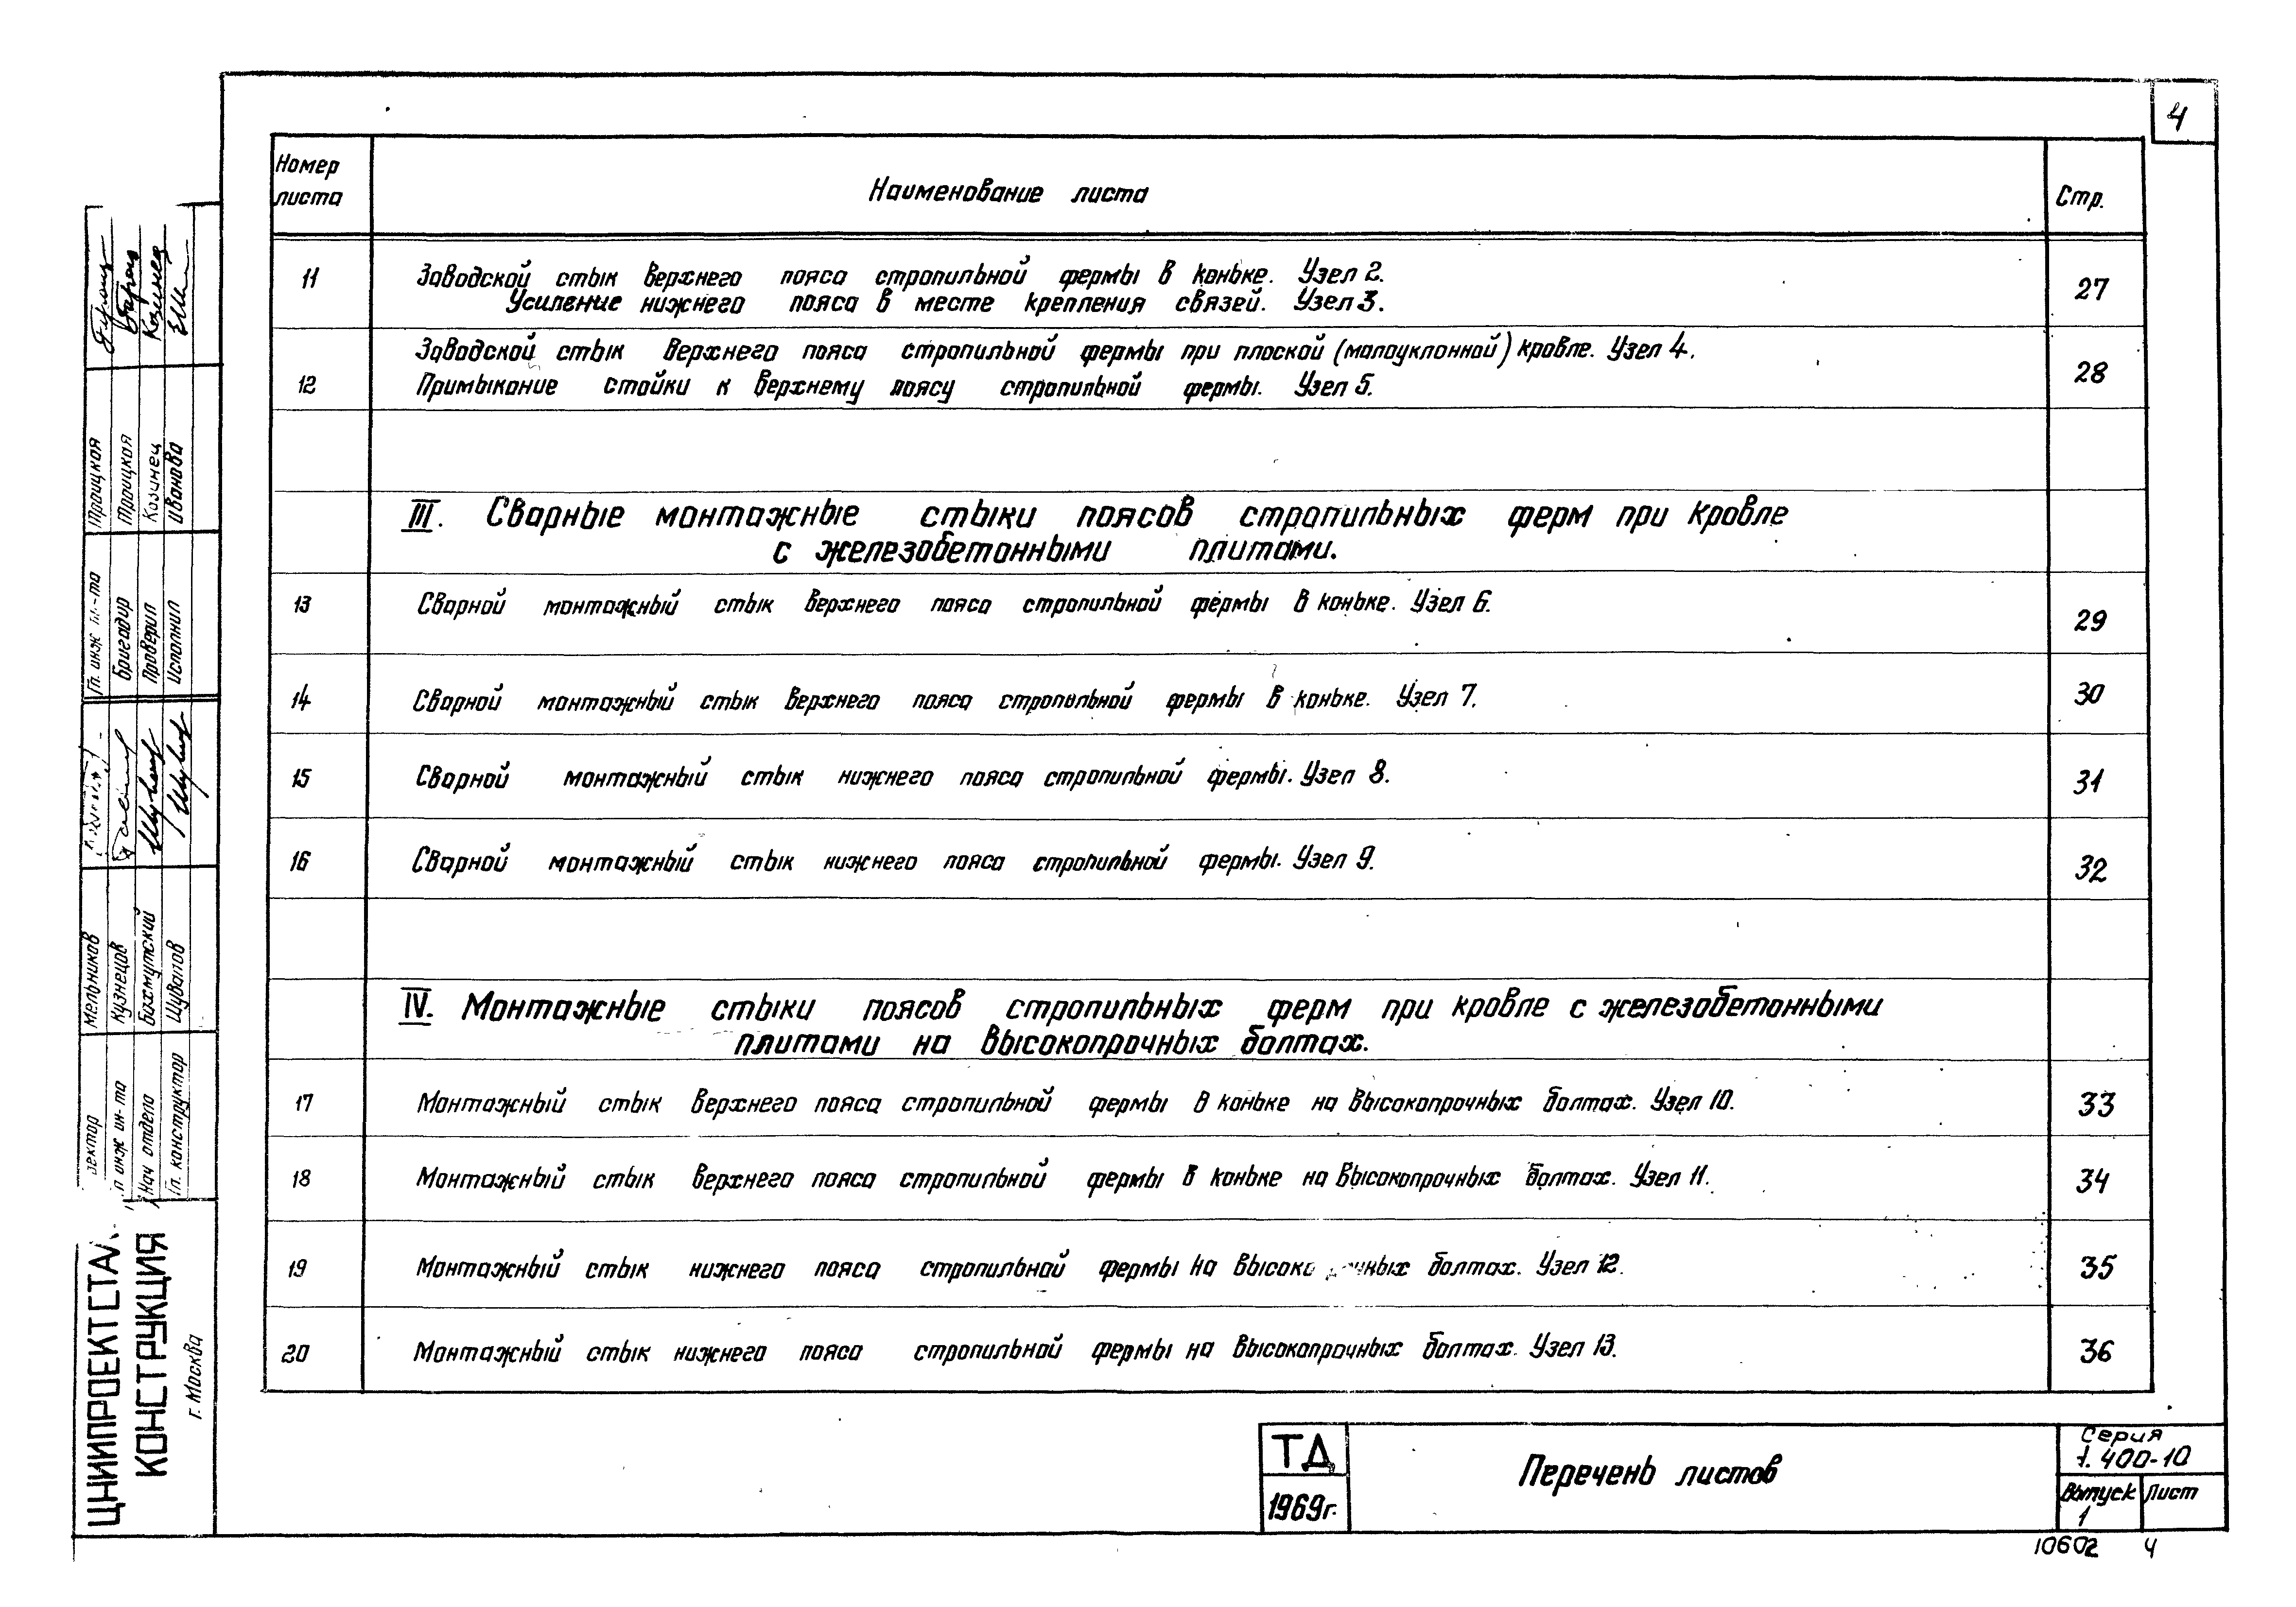 4
Номер листа
Наименование листа
Стр.
11
Заводской стык верхнего пояса стропильной фермы в коньке. Узел 2.
Усиление нижнего пояса в месте крепления связей. Узел 3.
27
Заводской стык верхнего пояса стропильной фермы при плоской (малоуклонной) кровле. Узел 4.
12
Примыкание стойки к верхнему поясу стропильной фермы. Узел 5.
28
III. Сварные монтажные стыки поясов стропильных ферм при кровле
с железобетонными плитами.
13
Сварной монтажный стык верхнего пояса стропильной фермы в коньке. Узел 6.
29
14
Сварной монтажный стык верхнего пояса стропильной фермы в коньке. Узел 7.
30
15
Сварной монтажный стык нижнего пояса стропильной фермы. Узел 8.
31
16
Сварной монтажный стык нижнего пояса стропильной фермы. Узел 9.
32
IV. Монтажные стыки поясов стропильных ферм при кровле с железобетонными
плитами на высокопрочных болтах.
17
Монтажный стык верхнего пояса стропильной фермы в коньке на высокопрочных болтах. Узел 10.
33
18
Монтажный стык верхнего пояса стропильной фермы в коньке на высокопрочных болтах. Узел 11.
34
19
Монтажный стык нижнего пояса стропильной фермы на высокопрочных болтах. Узел 12.
35
20
Монтажный стык нижнего пояса стропильной фермы на высокопрочных болтах. Узел 13.
36
Гл. инж. ин-та Троицкая
Бригадир Троицкая
Проверил Казинец Казинец
Исполнил Иванова
Мельников
инж ин-та Кузнецов
Нач отдела Бахмутский
Гл. конструктор Шувалов
ЦНИИПРОЕКТСТАЛ
КОНСТРУКЦИЯ
г. Москва
ТД
1969г.
Перечень листов
Серия
1.400-10
Выпуск
1
Лист
10602 4